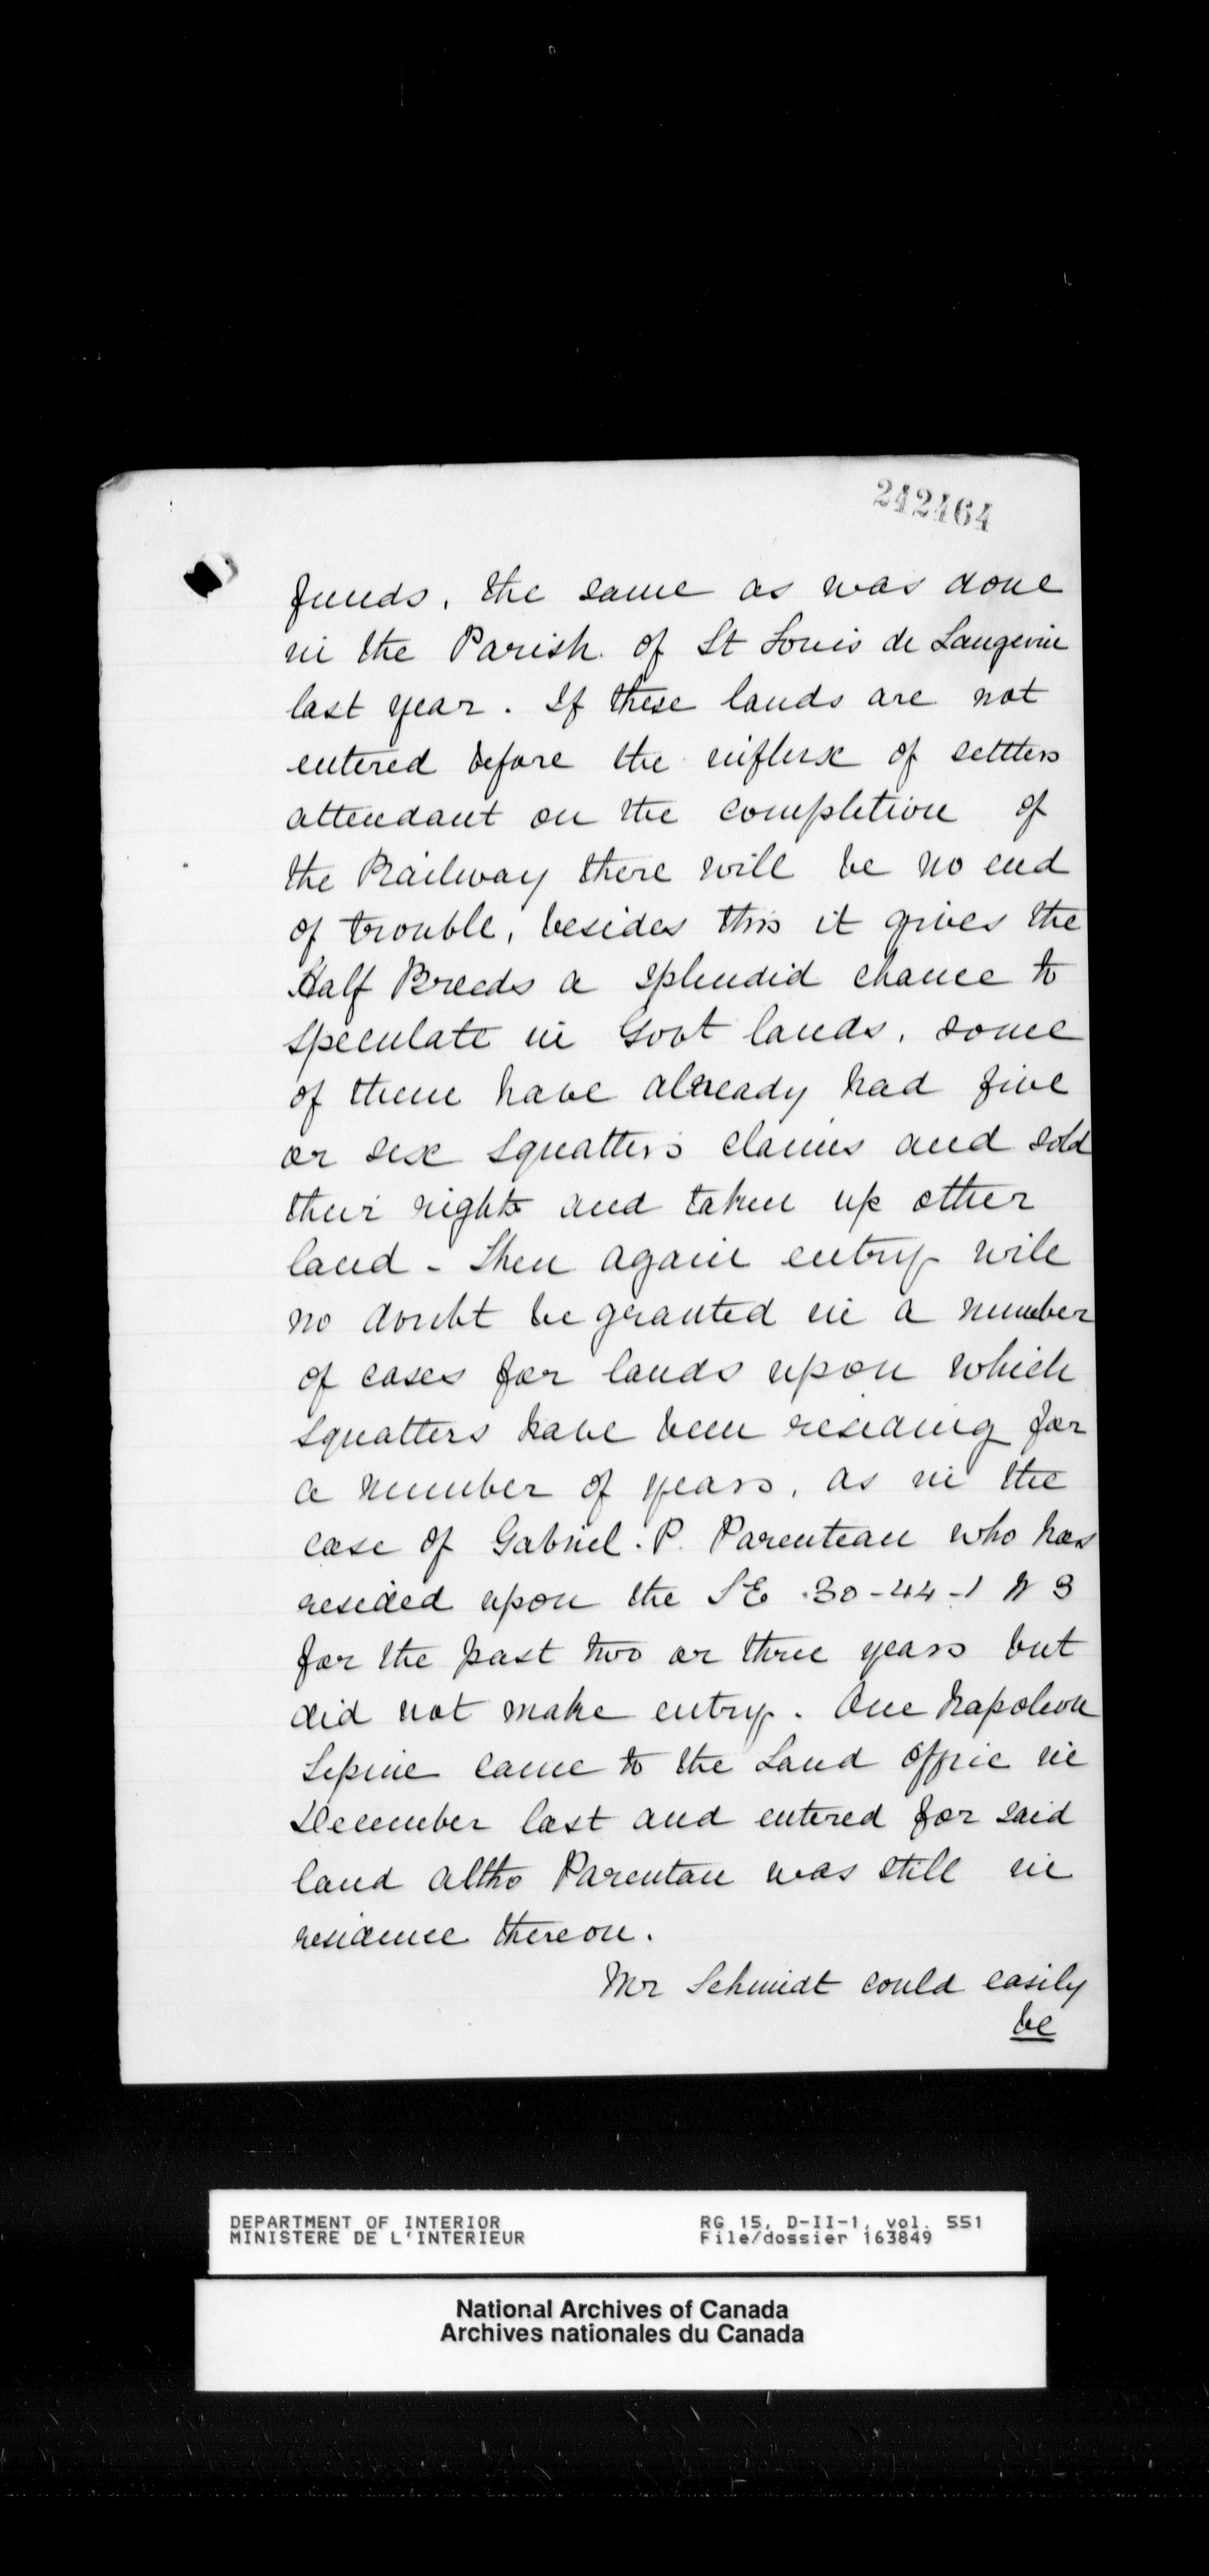 242464
funds, the same as was done
in the Parish of St Louis de Langevin
last year. If these lands are not
entered before the influx of settlers
attendant on the completion of
the Railway there will be no end
of trouble, besides this it gives the
Half Breeds a splendid chance to
speculate in Govt lands, some
of them have already had five
or six squatters claims and sold
their rights and taken up other
land - Then again entry will
no doubt be granted in a number
of cases for lands upon which
squatters have been residing for
a number of years, as in the
case of Gabriel. P. Parenteau who has
resided upon the SE 30-44-1 W 3
for the past two or three years but
did not make entry. One Napoleon
Lepine came to the Land Office in
December last and entered for said
land altho Parentau was still in
residence thereon.
Mr Schmidt could easily
be
DEPARTMENT OF INTERIOR
MINISTERE DE L'INTERIEUR
RG 15, D-II-1, vol. 551
File/dossier 163849
National Archives of Canada
Archives nationales du Canada